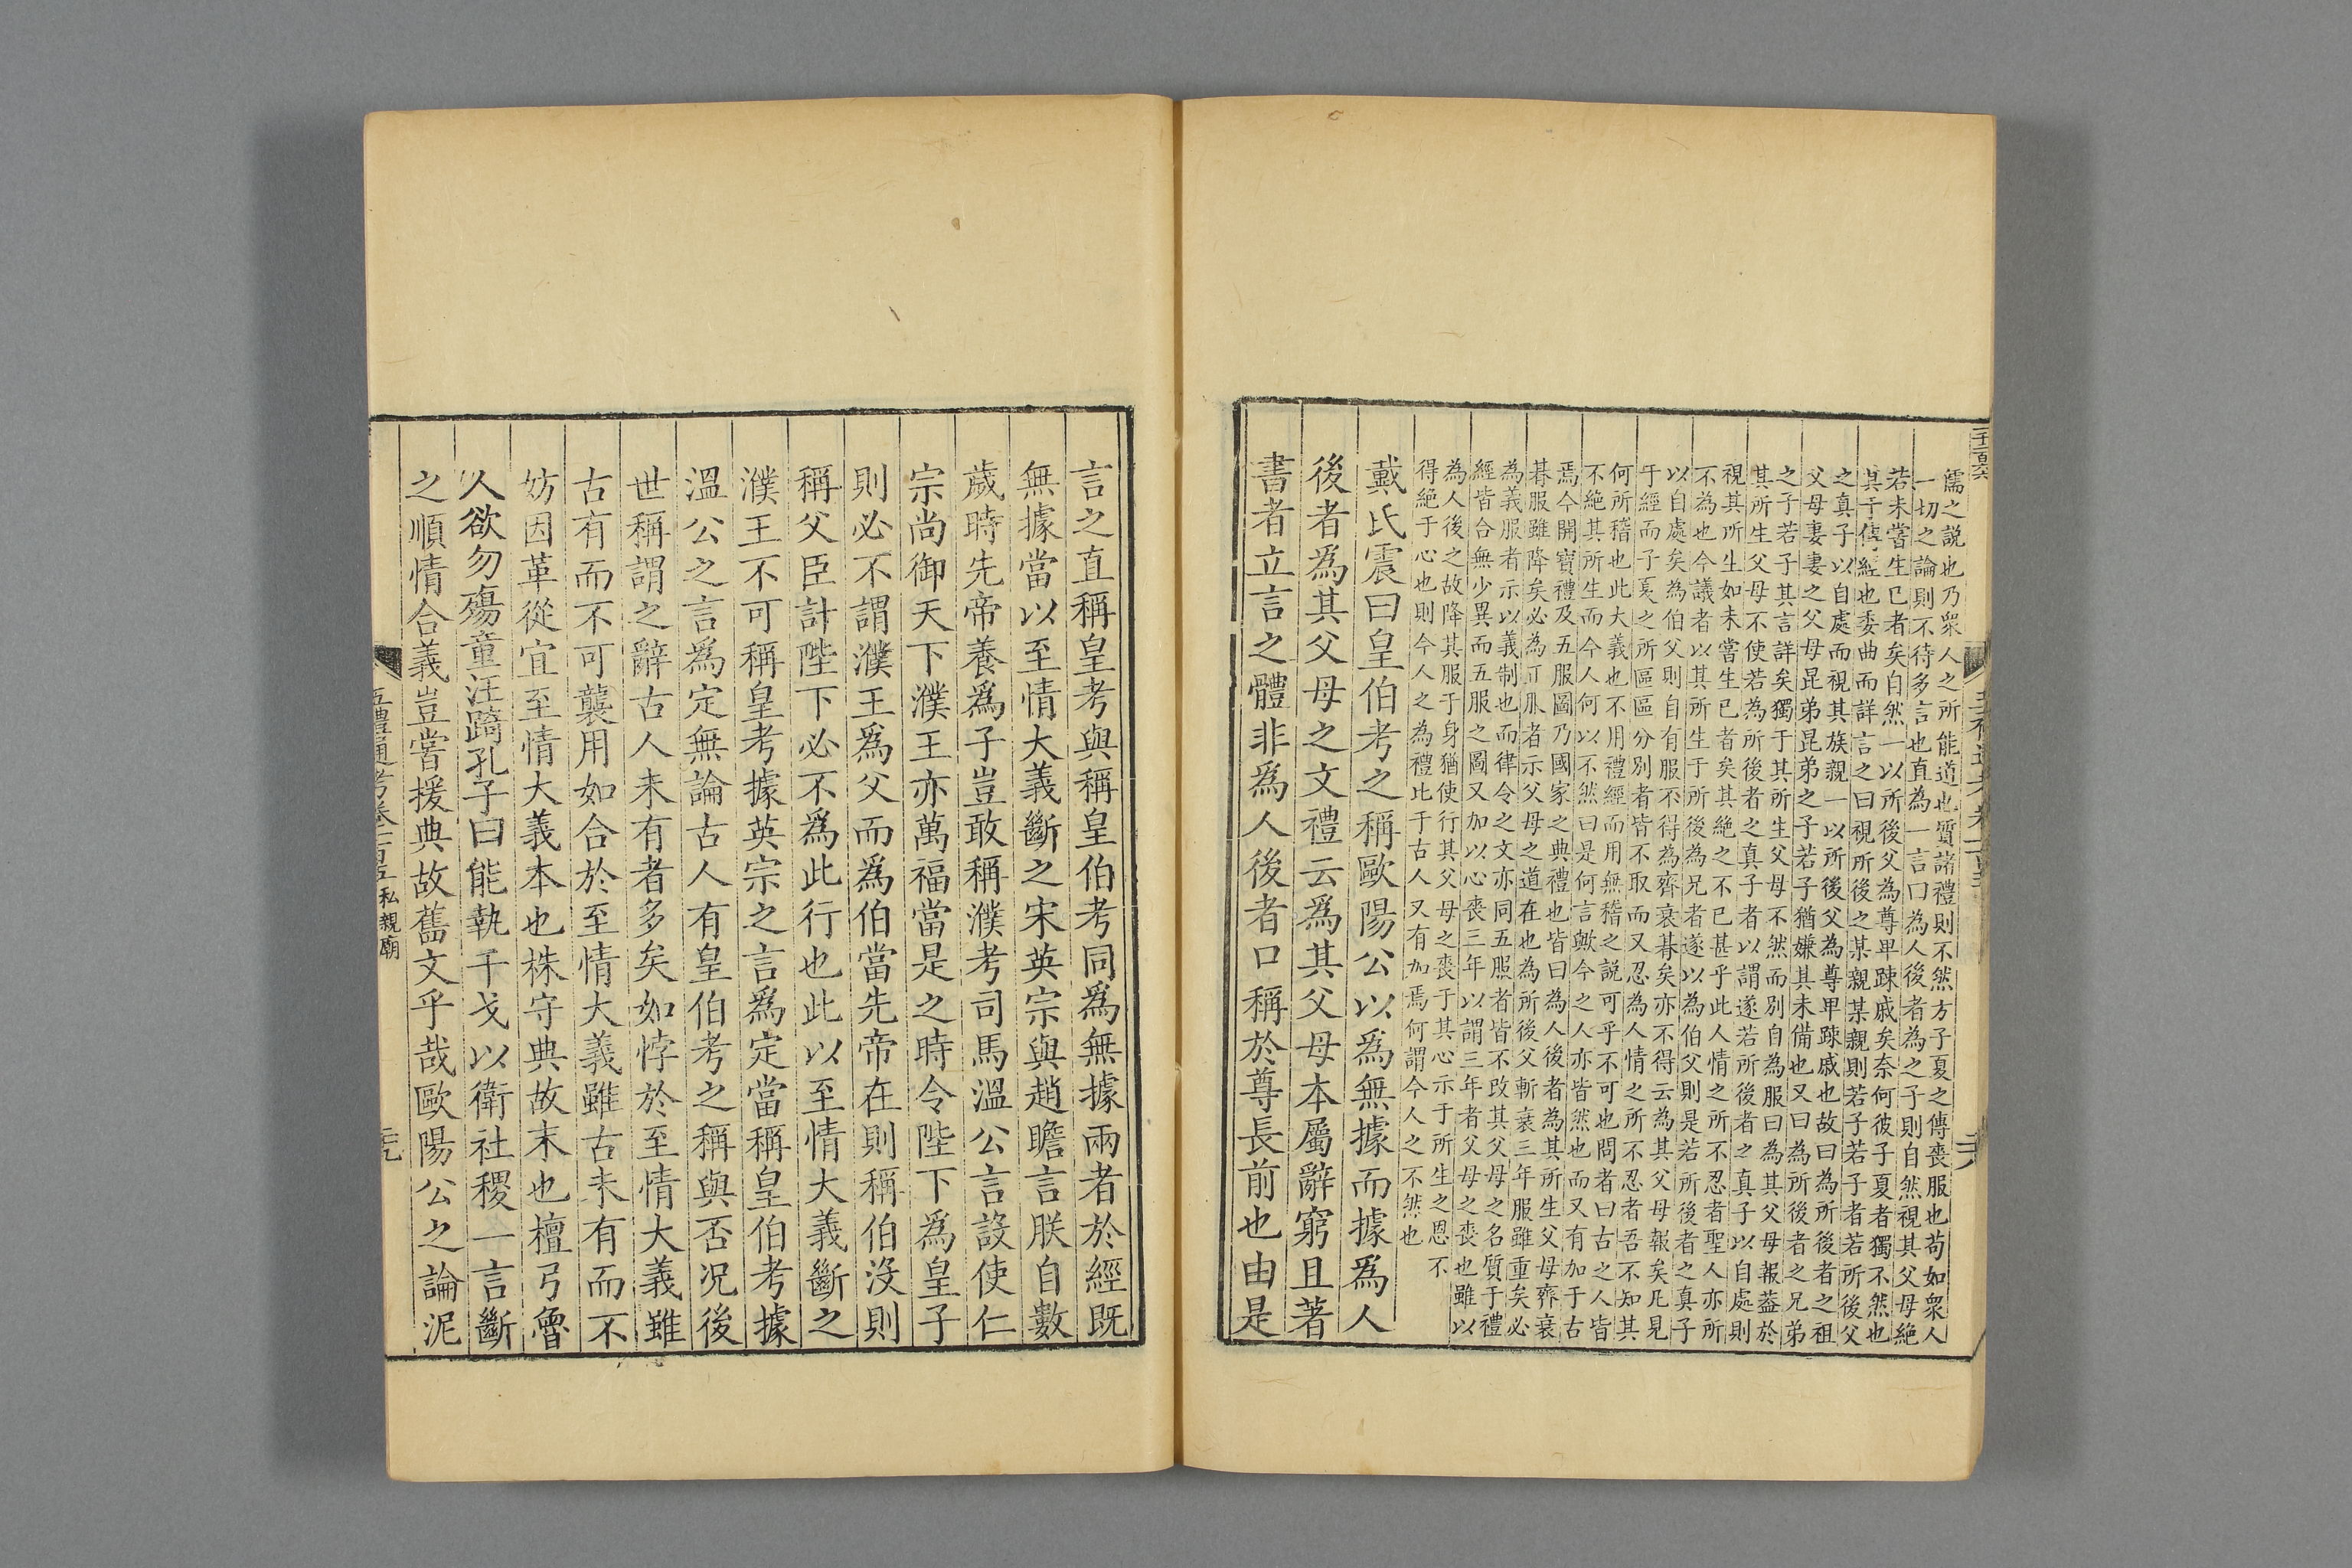 儒之說也乃衆人之所能道也質諸禮則不然方子夏之傳喪服也苟如衆人
一切之論則不待多言也直為一言曰為人後者為之子則自然視其父母絶
若未嘗生已者矣自然一以所後父為尊卑踈戚矣奈何彼子夏者獨不然也
其于傳經也委曲而詳言之曰視所後之某親某親則若子若子者若所後父
之真子以自處而視其族親一以所後父為尊卑踈戚也故曰為所後者之祖
父母妻妻之父母昆弟昆弟之子若子猶嫌其未備也又曰為所後者之兄弟
之子若子其言詳矣獨于其所生父母不然而別自為服曰為其父母報葢於
其所生父母不使若為所後者之真子者以謂遂若所後者之真子以自處則
視其所生如未嘗生已者矣其絶之不已甚乎此人情之所不忍者聖人亦所
不為也今議者以其所生于所後為兄者遂以為伯父則是若所後者之真子
以自處矣為伯父則自有服不得為齊衰朞矣亦不得云為其父母報矣凡見
于經而子夏之所區區分別者皆不取而又忍為人情之所不忍者吾不知其
何所稽也此大義也不用禮經而用無稽之説可乎不可也問者曰古之人皆
不絶其所生而今人何以不然曰是何言歟今之人亦皆然也而又有加于古
焉今開寶禮及五服圖乃國家之典禮也皆曰為人後者為其所生父母齊衰
朞服雖降矣必為正服者示父母之道在也為所後父斬衰三年服雖重矣必
為義服者示以義制也而律令之文亦同五服者皆不改其父母之名質于禮
經皆合無少異而五服之圖又加以心喪三年以謂三年者父母之喪也雖以
為人後之故降其服于身猶使行其父母之喪于其心示于所生之恩不
得絶于心也則今人之為禮比于古人又有加焉何謂今人之不然也
戴氏震曰皇伯考之稱歐陽公以爲無據而據爲人
後者爲其父母之文禮云爲其父母本屬辭窮且著
書者立言之體非爲人後者口稱於尊長前也由是
言之直稱皇考與稱皇伯考同爲無據兩者於經既
無據當以至情大義斷之宋英宗與趙瞻言朕自數
歲時先帝養爲子豈敢稱濮考司馬溫公言設使仁
宗尚御天下濮王亦萬福當是之時令陛下爲皇子
則必不謂濮王爲父而爲伯當先帝在則稱伯沒則
稱父臣計陛下必不爲此行也此以至情大義斷之
濮王不可稱皇考據英宗之言爲定當稱皇伯考據
溫公之言爲定無論古人有皇伯考之稱與否況後
世稱謂之辭古人未有者多矣如悖於至情大義雖
古有而不可襲用如合於至情大義雖古未有而不
妨因革從宜至情大義本也株守典故末也檀弓魯
人欲勿殤童汪踦孔子曰能執干戈以衛社稷一言斷
之順情合義豈嘗援典故舊文乎哉歐陽公之論泥
五禮通考卷一百五 私親廟